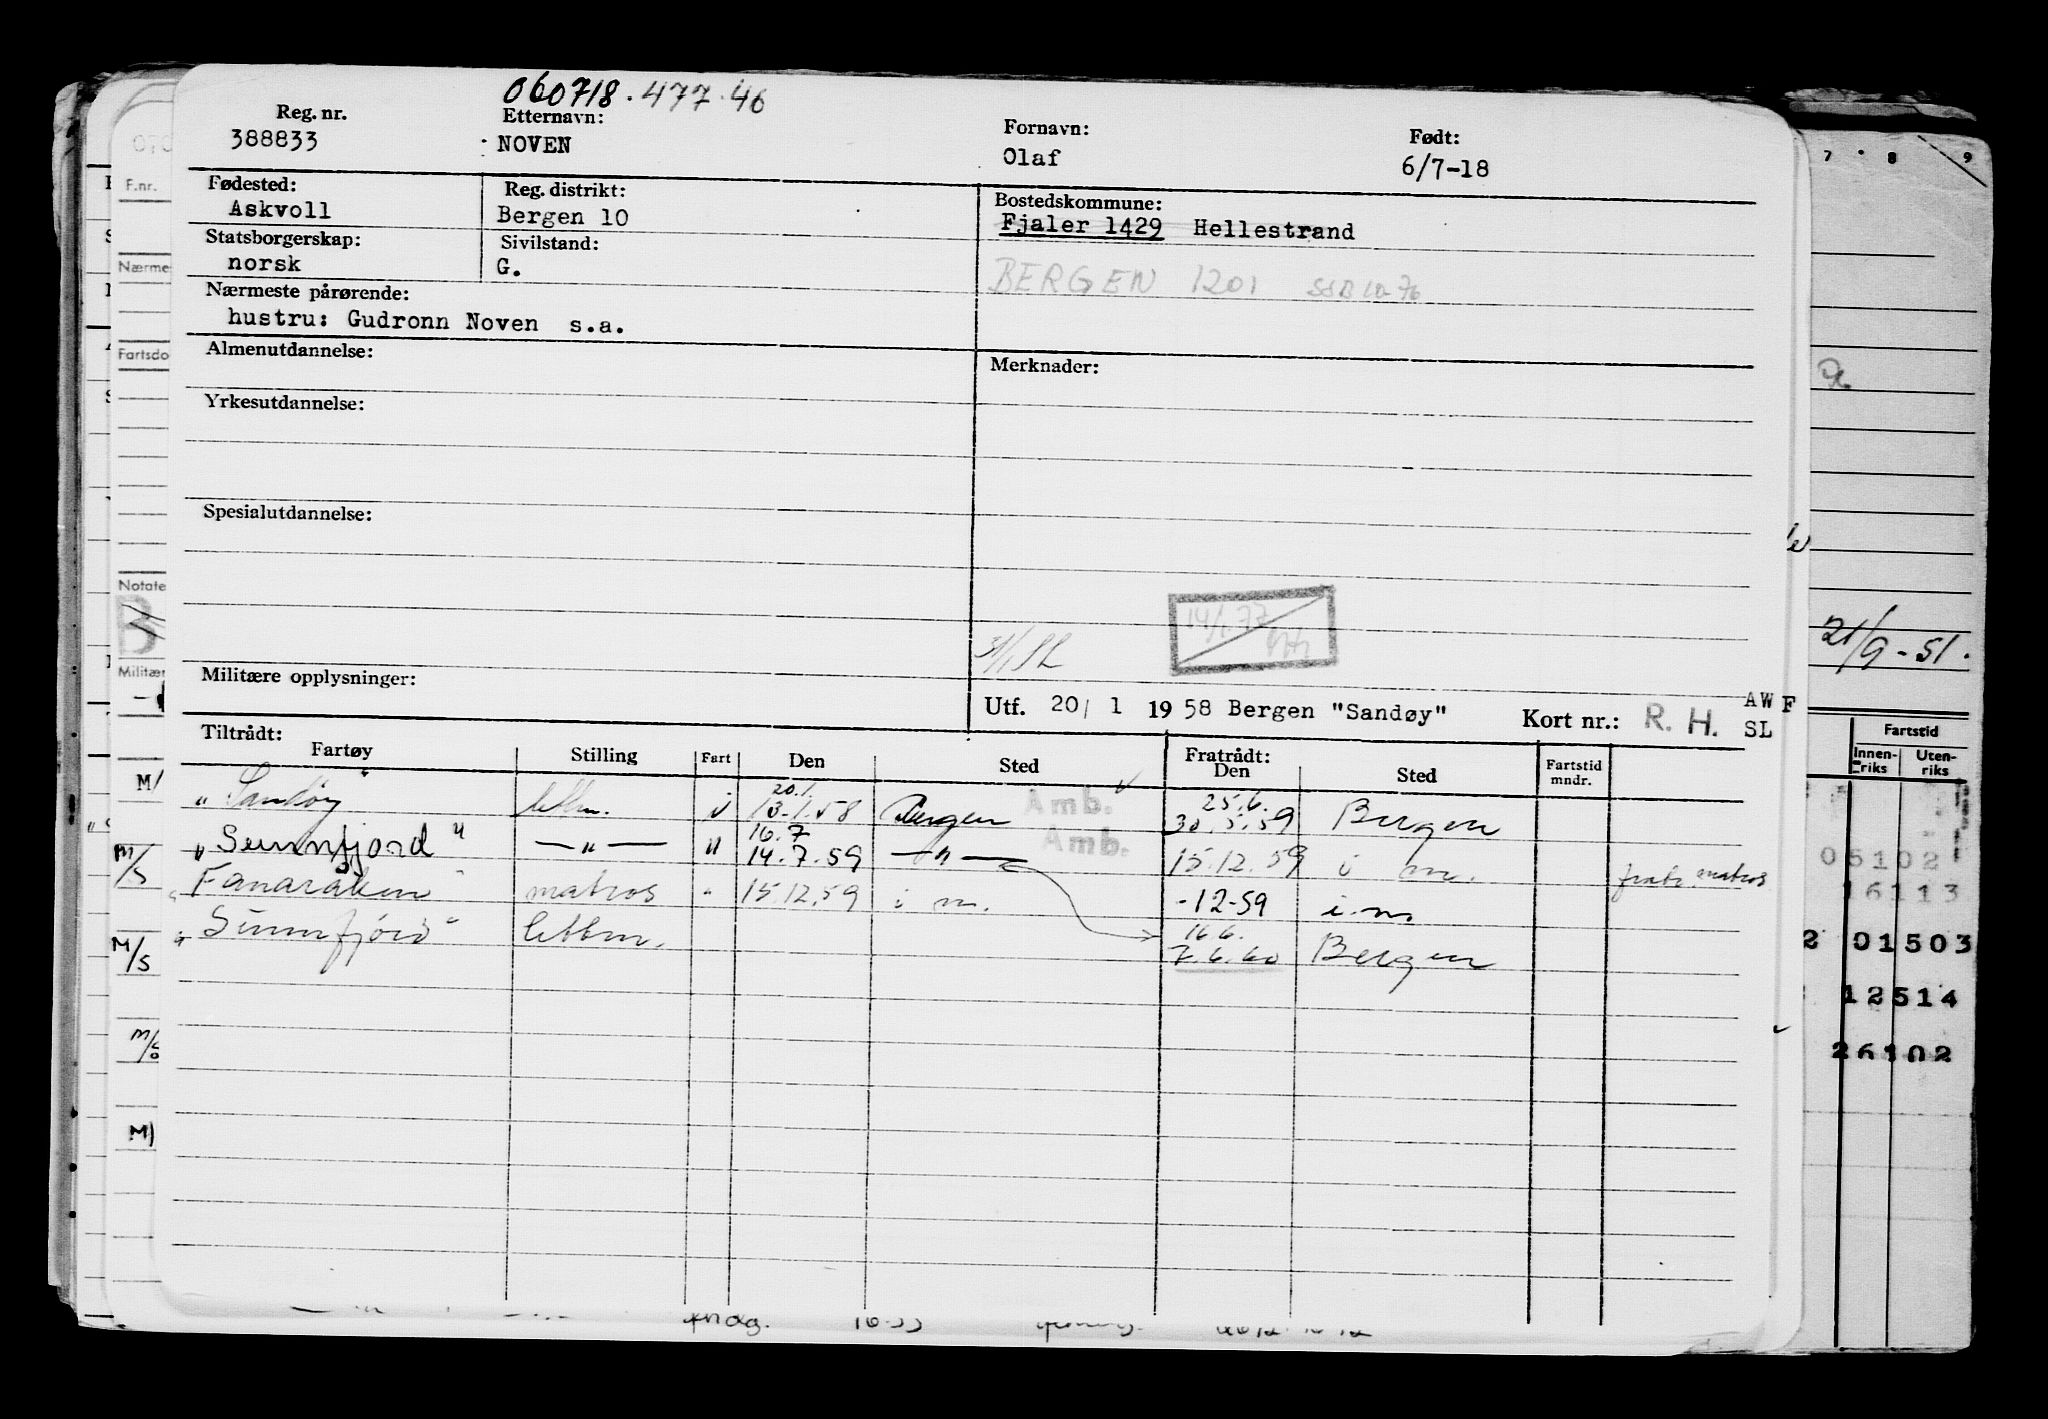 060718.477.46
Reg. nr. Etternavn: Fornavn: Født:
388833 NOVEN Olaf 6/7-18
Fødested: Reg. distrikt: Bostedskommune:
Askvoll Bergen 10 Fjaler 1429 Hellestrand
Statsborgerskap: Sivilstand:
norsk G. BERGEN 1201 SSB 10-76
Nærmeste pårørende:
hustru: Gudronn Noven s.a.
Almenutdannelse: Merknader:
Yrkesutdannelse:
Spesialutdannelse:
14/1 77
Militære opplysninger:
Utf. 20/ 1 1958 Bergen "Sandøy" Kort nr.: R. H. AW F
SL
Tiltrådt: Fratrådt:
Fartøy Stilling Fart Den Sted Den Sted Fartstid mndr.
20.1. 25.6.
"Sandøy" lettm. i 13.1.58 Bergen Amb. 30.5.59 Bergen
16.7
"Sunnfjord" —"— " 14.7.59 —"— Amb. 15.12.59 i m. fratr. matros
"Fanaråken" matros " 15.12.59 i m. -12-59 i.m.
16.6.
"Sunnfjord" lettm. 7.6.60 Bergen
F.nr.
Nærme
Fartsdo
Notate
B
Militær
M/
M/S
M/S
M/S
M)
7 8 9
21/9-51.
Fartstid
Innen-riks Uten-riks
05102
16113
2 01503
12514
26102